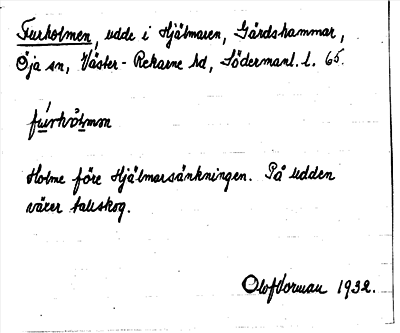 Furholmen, udde i Hjälmaren, Gårdshammar,
Öja sn, Väster-Rekarne hd, Södermanl. l. 65.
Holme före Hjälmarsänkningen. På udden
växer tallskog.
Olof Norman 1932.